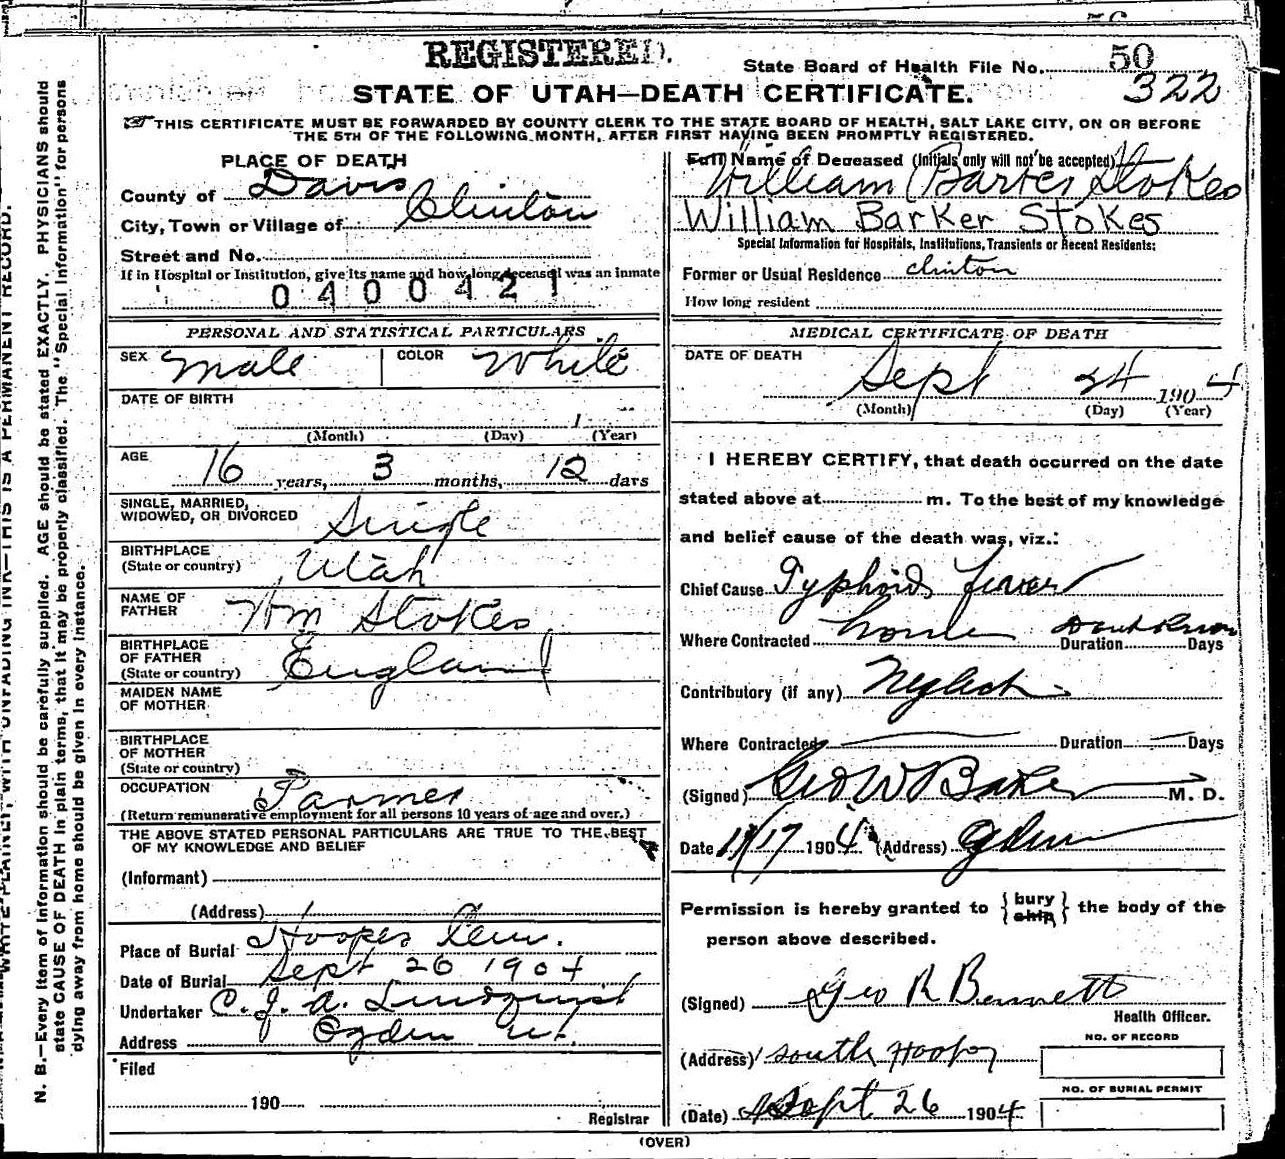 REGISTERED.
State Board of Health File No. 50
322
STATE OF UTAH—DEATH CERTIFICATE.
THIS CERTIFICATE MUST BE FORWARDED BY COUNTY CLERK TO THE STATE BOARD OF HEALTH, SALT LAKE CITY, ON OR BEFORE
THE 5TH OF THE FOLLOWING MONTH, AFTER FIRST HAVING BEEN PROMPTLY REGISTERED.
PLACE OF DEATH
County of Davis
City, Town or Village of Clinton
Street and No.
If in Hospital or Institution, give its name and how long deceased was an inmate
0400421
PERSONAL AND STATISTICAL PARTICULARS
SEX Male COLOR White
DATE OF BIRTH
(Month) (Day) (Year)
AGE
16 years, 3 months, 12 days
SINGLE, MARRIED,
WIDOWED, OR DIVORCED Single
BIRTHPLACE
(State or country) Utah
NAME OF
FATHER Wm Stokes
BIRTHPLACE
OF FATHER
(State or country) England
MAIDEN NAME
OF MOTHER
BIRTHPLACE
OF MOTHER
(State or country)
OCCUPATION Farmer
(Return remunerative employment for all persons 10 years of age and over.)
THE ABOVE STATED PERSONAL PARTICULARS ARE TRUE TO THE BEST
OF MY KNOWLEDGE AND BELIEF
(Informant)
(Address)
Place of Burial Hooper Cem.
Date of Burial Sept 26 1904
Undertaker C. J. A. Lindquist
Address Ogden Ut.
Filed
190
Registrar
Full Name of Deceased (Initials only will not be accepted)
William Barker Stokes
William Barker Stokes
Special Information for Hospitals, Institutions, Transients or Recent Residents:
Former or Usual Residence Clinton
How long resident
MEDICAL CERTIFICATE OF DEATH
DATE OF DEATH
Sept 24 1904
(Month) (Day) (Year)
I HEREBY CERTIFY, that death occurred on the date
stated above at m. To the best of my knowledge
and belief cause of the death was, viz.:
Chief Cause Typhoid fever
Where Contracted home Duration Dont Know Days
Contributory (if any) Neglect
Where Contracted Duration Days
(Signed) Geo W Baker M. D.
Date 11/17 1904 (Address) Ogden
Permission is hereby granted to {bury ship} the body of the
person above described.
(Signed) Geo R Bennett
Health Officer.
(Address) South Hooper
NO. OF RECORD
NO. OF BURIAL PERMIT
(Date) Sept 26 1904
(OVER)
N. B.—Every item of information should be carefully supplied. AGE should be stated EXACTLY. PHYSICIANS should
state CAUSE OF DEATH in plain terms, that it may be properly classified. The "Special Information" for persons
dying away from home should be given in every instance.
WRITE PLAINLY WITH UNFADING INK—THIS IS A PERMANENT RECORD.